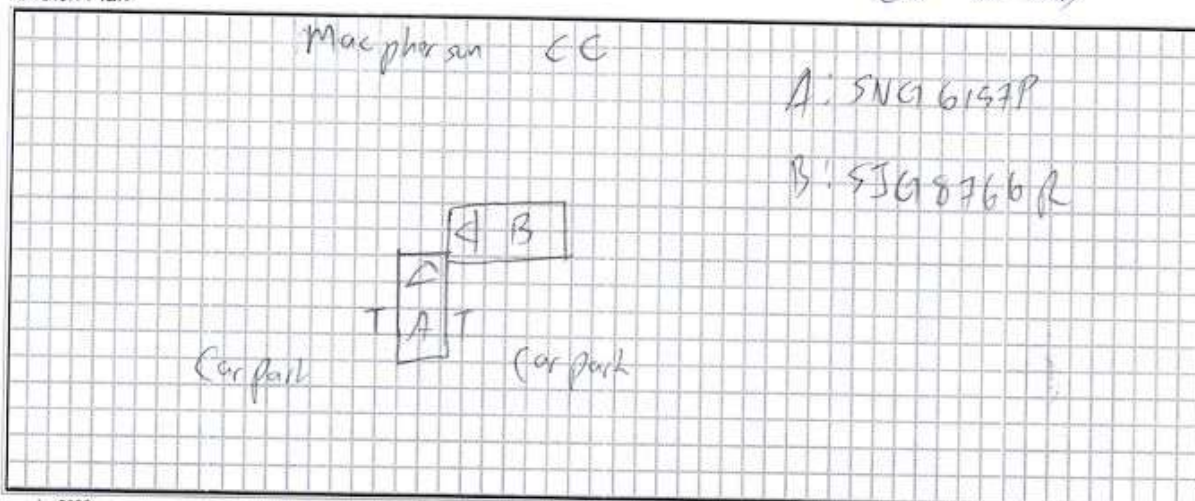 Macpherson CC
A: SNG6157P
B: SJG8766R
B
T A T
Car Park Car Park